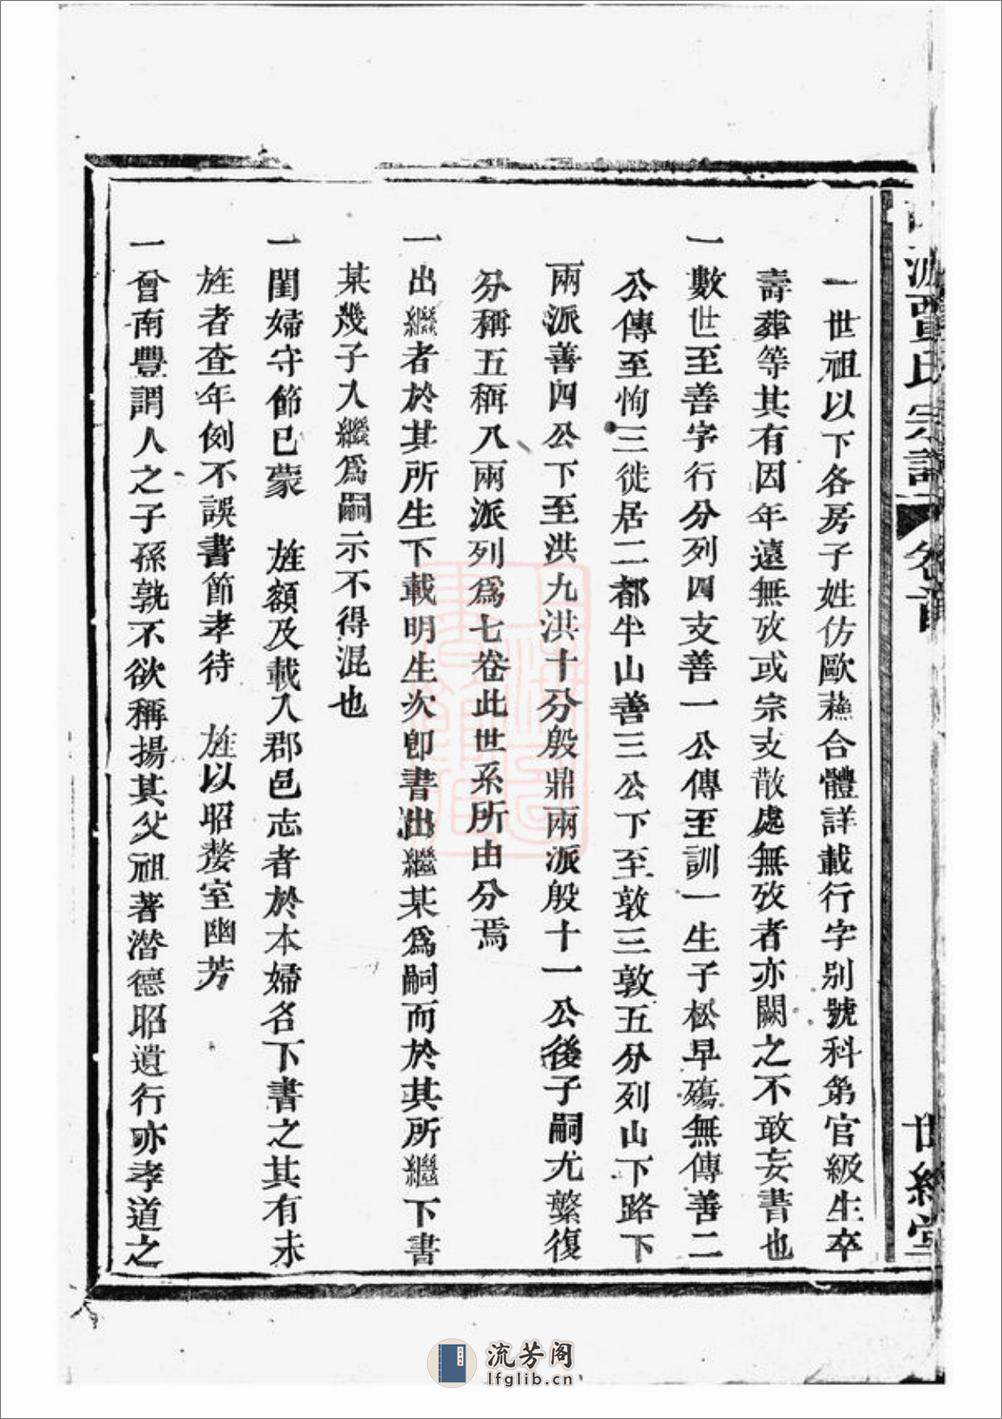 賈氏宗譜 卷首 世綵堂
一世祖以下各房子姓仿歐蘇合體詳載行字别號科第官級生卒
壽葬等其有因年遠無攷或宗支散處無攷者亦闕之不敢妄書也
一數世至善字行分列四支善一公傳至訓一生子松早殤無傳善二
公傳至恂三徙居二都半山善三公下至敦三敦五分列山下路下
兩派善四公下至洪九洪十分殷鼎兩派殷十一公後子嗣尤繁復
分稱五稱八兩派列爲七卷此世系所由分焉
一出繼者於其所生下載明生次卽書出繼某爲嗣而於其所繼下書
某幾子入繼爲嗣示不得混也
一閨婦守節已蒙 旌額及載入郡邑志者於本婦名下書之其有未
旌者查年例不誤書節孝待 旌以昭嫠室幽芳
一曾南豐謂人之子孫孰不欲稱揚其父祖著潛德昭遺行亦孝道之
流芳阁
lfglib.cn